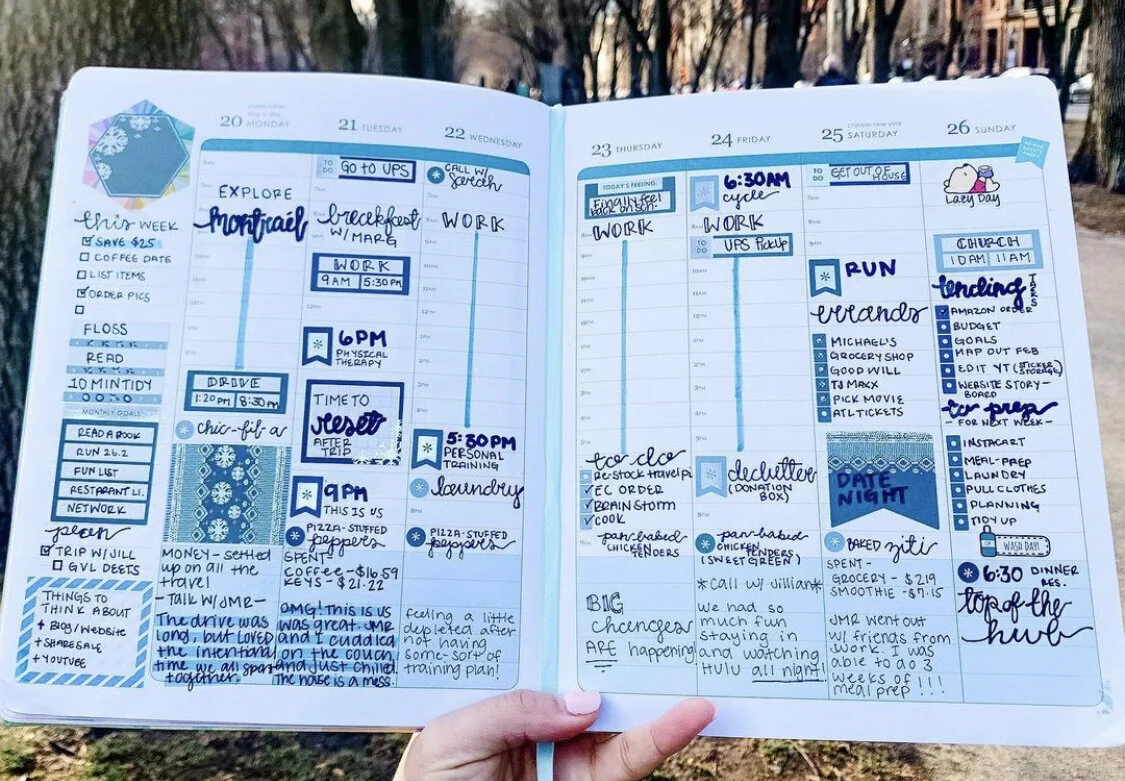 this WEEK
SAVE $25
COFFEE DATE
LIST ITEMS
ORDER PICS
FLOSS
READ
10 MIN TIDY
MONTHLY GOALS
READ A BOOK
RUN 26.2
FUN LIST
RESTARANT LI.
NETWORK
plan
TRIP W/JILL
GVL DEETS
THINGS TO
THINK ABOUT
+ Blog/website
+ SHARESALE
+ YOUTUBE
20 MONDAY
EXPLORE
montrail
DRIVE
1:20PM 8:30PM
chic-fil-a
MONEY - settled
up on all the
travel
-Talk W/JMR-
The drive was
long, but LOVED
the intentional
time we all spent
together.
21 TUESDAY
TO DO
GO TO UPS
breakfast
W/MARG
WORK
9AM 5:30PM
6PM
PHYSICAL
THERAPY
TIME TO
reset
AFTER
TRIP
9PM
THIS IS US
PIZZA-STUFFED
peppers
SPENT:
COFFEE-$16.59
KEYS-$21.22
OMG! THIS IS US
was great. JMR
and I cuddled
on the couch
and just chilled.
The house is a mess.
22 WEDNESDAY
CALL W/
Sarah
WORK
5:30PM
PERSONAL
TRAINING
laundry
PIZZA-STUFFED
peppers
feeling a little
depleted after
not having
some sort of
training plan!
23 THURSDAY
TODAY'S FEELING:
Finally feel
back on sch.
WORK
to do
RE-STOCK travel
EC ORDER
BRAINSTORM
COOK
pan-baked
CHICKEN TENDERS
BIG
changes
ARE happening
24 FRIDAY
6:30AM
cycle
WORK
TO DO
UPS PickUp
declutter
(DONATION
BOX)
pan-baked
CHICKEN TENDERS
(SWEETGREEN)
*Call w/ Jillian*
we had so
much fun
staying in
and watching
HULU all night!
25 SATURDAY
chinese new year
TO DO
GET OUT OF
HOUSE
RUN
errands
MICHAEL'S
GROCERY SHOP
GOOD WILL
TJ MAXX
PICK MOVIE
ATL TICKETS
DATE
NIGHT
BAKED ziti
SPENT-
GROCERY - $219
SMOOTHIE - $7.15
JMR went out
w/ friends from
work. I was
able to do 3
weeks of
meal prep!!!
26 SUNDAY
Lazy Day
CHURCH
10AM 11AM
AMAZON ORDER
BUDGET
GOALS
MAP OUT FEB
EDIT YT (STICKER
STORAGE)
WEBSITE STORY-
BOARD
to prep
- FOR NEXT WEEK -
INSTACART
MEAL-PREP
LAUNDRY
PULL CLOTHES
PLANNING
TIDY UP
WASH DAY!
6:30 DINNER
RES.
top of the
hub